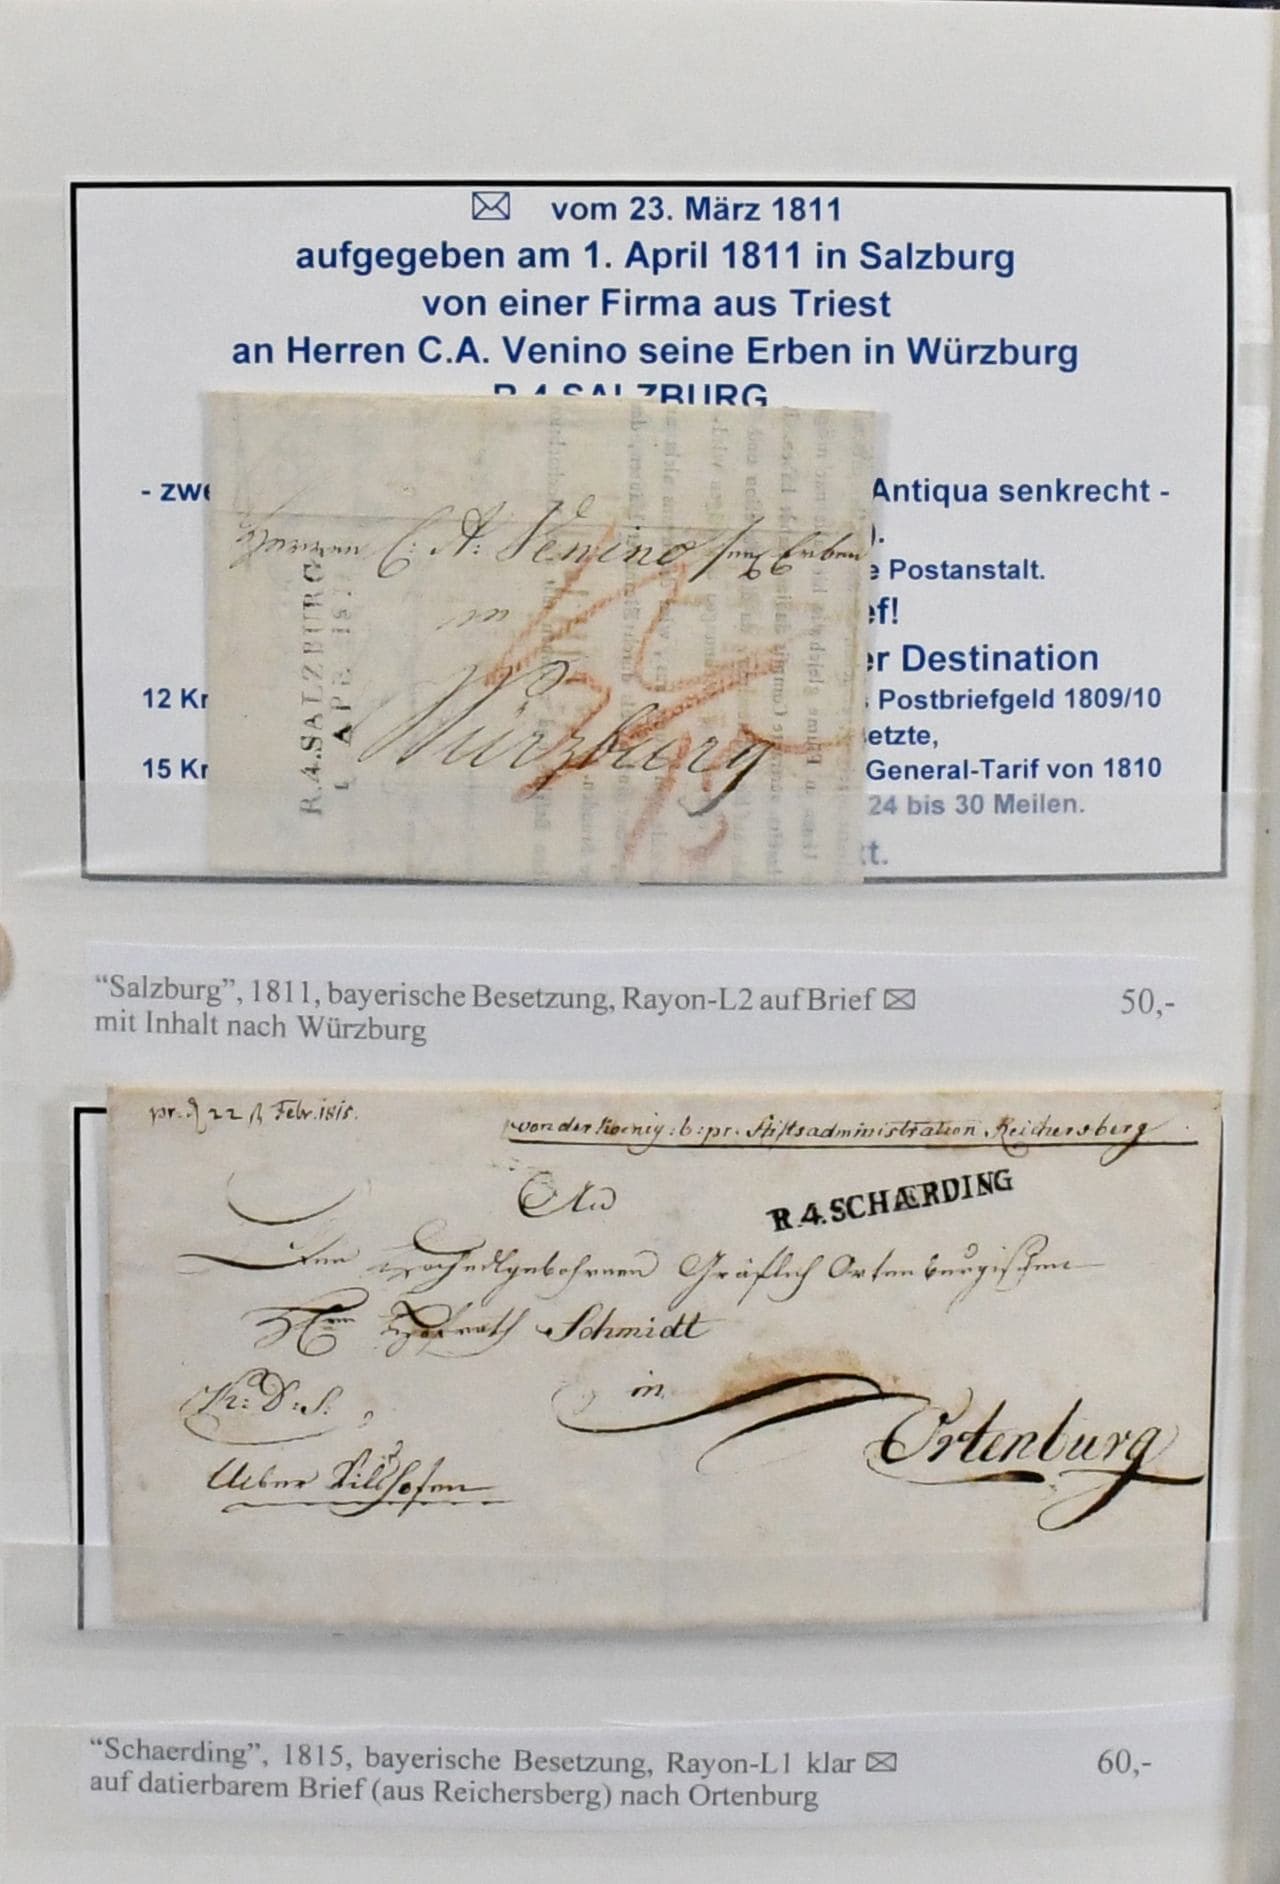 vom 23. März 1811
aufgegeben am 1. April 1811 in Salzburg
von einer Firma aus Triest
an Herren C.A. Venino seine Erben in Würzburg
R.4.SALZBURG
- zwe
Antiqua senkrecht -
).
e Postanstalt.
ef!
er Destination
12 Kr
s Postbriefgeld 1809/10
etzte,
15 Kr
General-Tarif von 1810
24 bis 30 Meilen.
kt.
Herren C: A: Venino seel Erben
in
Würzburg
R.4.SALZBURG
1 APR. 1811
“Salzburg”, 1811, bayerische Besetzung, Rayon-L2 auf Brief
mit Inhalt nach Würzburg
50,-
pr. 22 Febr. 1815.
von der Koenig: b: pr. Stiftsadministration Reichersberg
An
R.4.SCHÆRDING
Den Hochedlgebohrnen Gräflich Ortenburgischen
Hrn Hofrath Schmidt
K: D: S:
in
Ortenburg
Ueber Vilshofen
“Schaerding”, 1815, bayerische Besetzung, Rayon-L1 klar
auf datierbarem Brief (aus Reichersberg) nach Ortenburg
60,-